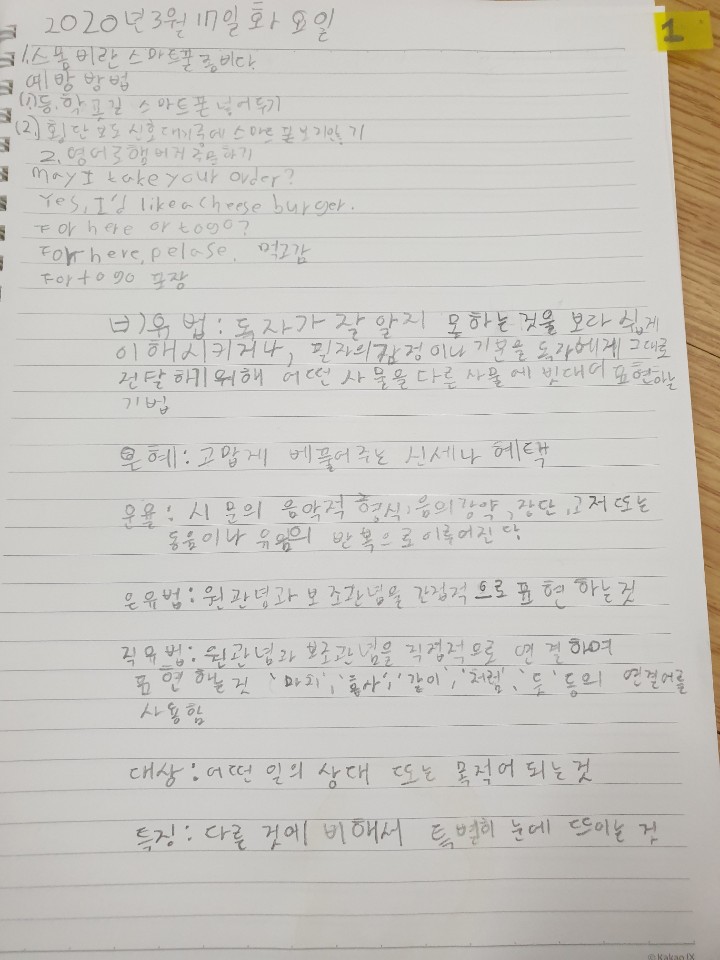 2020년3월 17일 화요일
1
1.스몸비란 스마트폴 좀비다.
예방방법
(1.)등,학교길 스마트폰 넣어두기
(2.) 횡단보도 신호대기중에 스마트폰보지않기
2. 영어로햄버거주문하기
May I take your order?
Yes, I'd like a cheese burger.
For here or togo?
For here, pelase. 먹고감
For togo 포장
비유법: 독자가 잘 알지 못하는 것을 보라 쉽게
이해시키거나, 필자의감정이나 기분을 독자에게 그대로
전달하기위해 어떤 사물을 다른 사물에 빗대어 표현하는
기법
은혜: 고맙게 베풀어주는 신세나 혜택
운율: 시 문의 음악적 형식,음의강약, 장단, 고저 또는
동음이나 유음의 반복으로이루어진다
은유법: 원관념과 보조관념을 간접적으로 표현 하는것
직유법: 원관념과 보조관념을 직접적으로 연결하여
표현 하는것 '마치', '흡사', '같이', '처럼', '듯', 등의 연결어를
사용함
대상: 어떤 일의 상대 또는 목적어 되는것
특징: 다를 것에 비해서 특별히 눈에 뜨이는 것
© Kakao IX